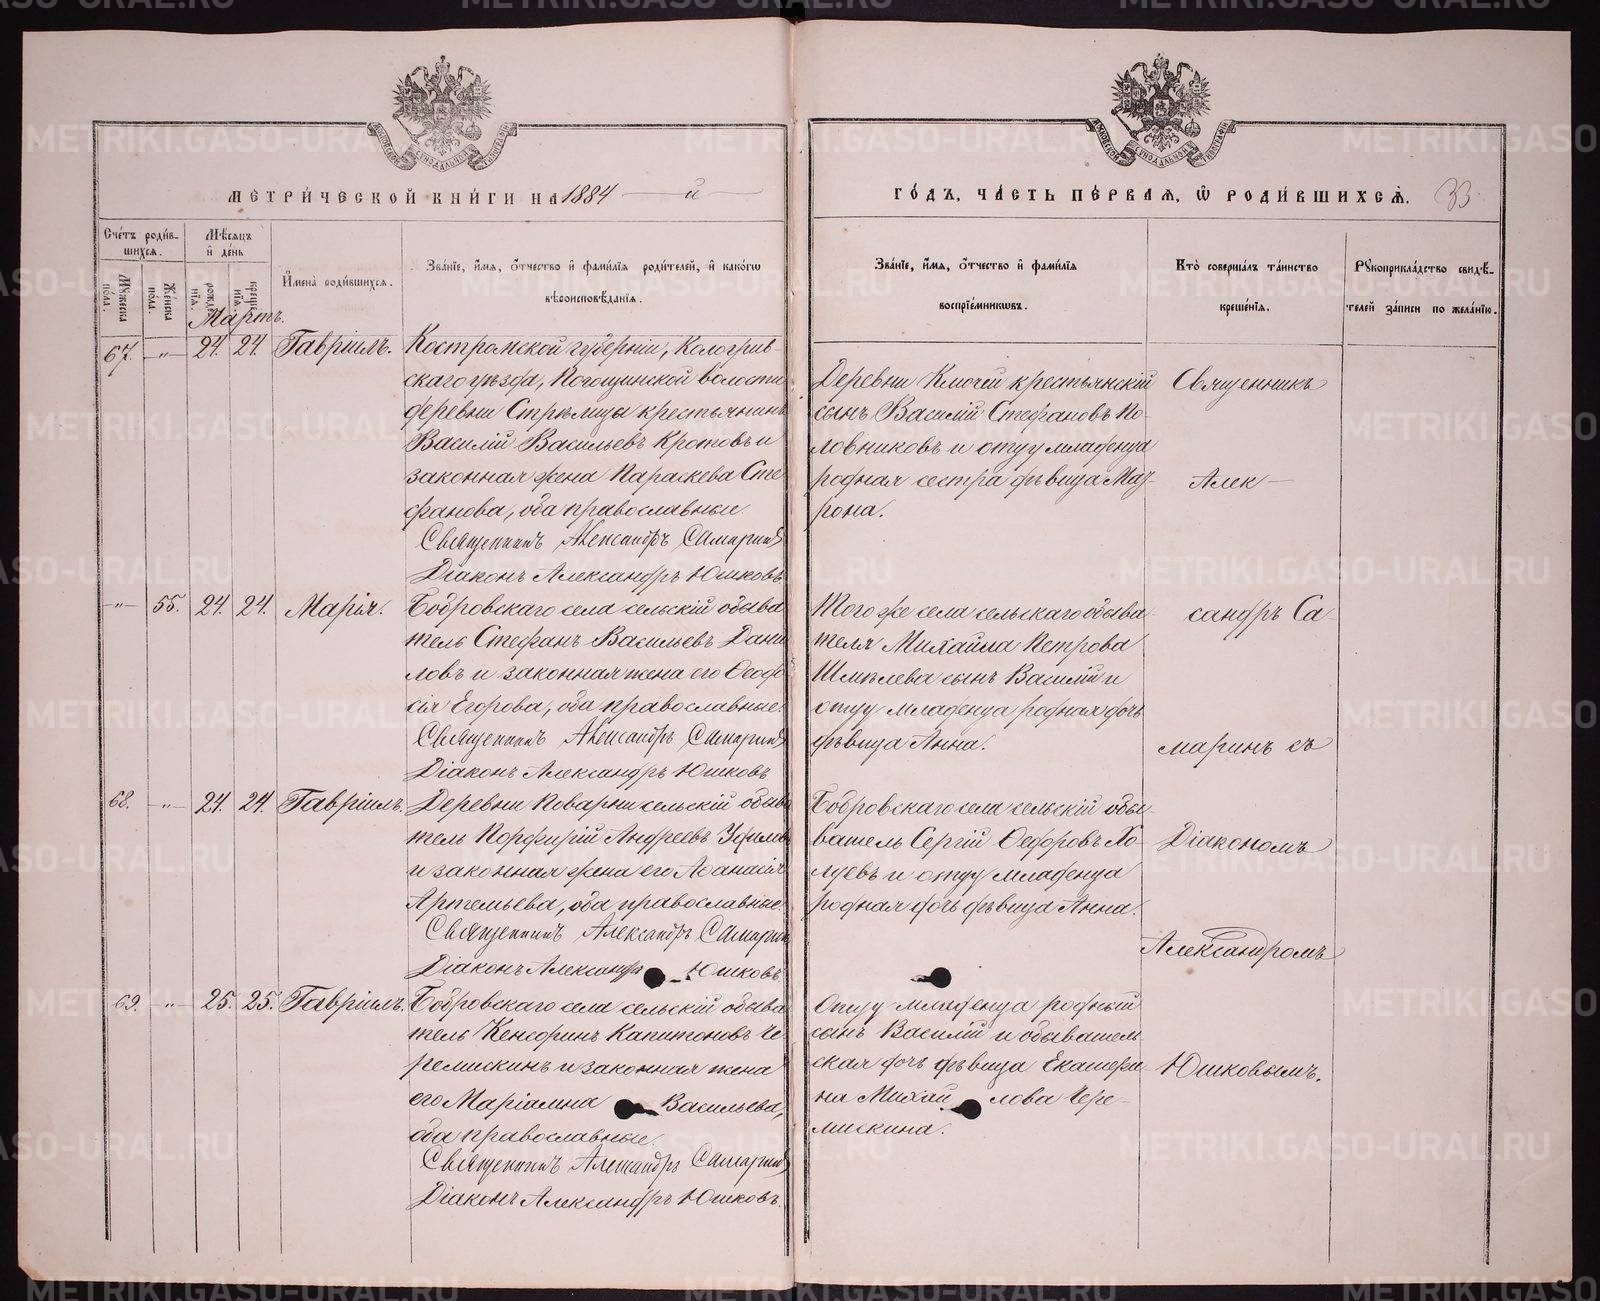 МЕТРИ́ЧЕСКОЙ КНИ́ГИ НА 1884 й
ГО́ДЪ, ЧА́СТЬ ПЕ́РВАѦ, Ѡ҆ РОДИ́ВШИХСѦ. 33
Сче́тъ роди́в-
шихсѧ.
Мѣ́сѧцъ
и҆ де́нь
Мꙋ́жеска
по́ла.
Же́нска
по́ла.
рожде́
нїѧ.
креще́
нїѧ.
И҆мена̀ роди́вшихсѧ.
Зва́нїе, и҆́мѧ, ѻ҆́тчество и҆ фами́лїѧ роди́телей, и҆ како́гѡ
вѣ̀роисповѣ́данїѧ.
Зва́нїе, и҆́мѧ, ѻ҆́тчество и҆ фами́лїѧ
воспрїе́мниковъ.
Кто̀ соверша́лъ та́инство
креще́нїѧ.
Рꙋкоприкла́дство свидѣ́-
телей за́писи по жела́нїю.
Мартъ.
67. -„- 24. 24. Гавріилъ.
Костромской губерніи, Кологрив-
скаго уѣзда, Погощинской волости
деревни Стрѣлицы крестьянинъ
Василій Васильевъ Кротовъ и
законная жена Параскева Сте
фанова, оба православные.
Священникъ Александръ Самаринъ
Діаконъ Александръ Юшковъ
Деревни Ключей крестьянскій
сынъ Василій Стефановъ По-
ловниковъ и отцу младенца
родная сестра дѣвица Мат-
рона.
Священникъ
Алек-
-„- 55. 24. 24. Марія.
Бобровскаго села сельскій обыва
тель Стефанъ Васильевъ Дани
ловъ и законная жена его Феодо
сія Егорова, оба православные.
Священникъ Александръ Самаринъ
Діаконъ Александръ Юшковъ
Того же села сельскаго обыва-
теля Михаила Петрова
Шмелева сынъ Василій и
отцу младенца родная дочь
дѣвица Анна.
сандръ Са-
маринъ съ
68. -„- 24. 24. Гавріилъ.
Деревни Поварни сельскій обыва
тель Порфирій Андреевъ
и законная жена его Афанасія
Артемьева, оба православные.
Священникъ Александръ Самаринъ
Діаконъ Александръ Юшковъ
Бобровскаго села сельскій обы-
ватель Сергій Феодоровъ Хо-
луевъ и отцу младенца
родная дочь дѣвица Анна.
Діакономъ
Александромъ
69. -„- 25. 25. Гавріилъ.
Бобровскаго села сельскій обыва
тель Кенсоринъ Капитоновъ Че
ремискинъ и законная жена
его Маріамна Васильева,
оба православные.
Священникъ Александръ Самаринъ
Діаконъ Александръ Юшковъ.
Отцу младенца родный
сынъ Василій и обыватель
ская дочь дѣвица Екатери
на Михайлова Чере-
мискина.
Юшковымъ.
METRIKI.GASO-URAL.RU